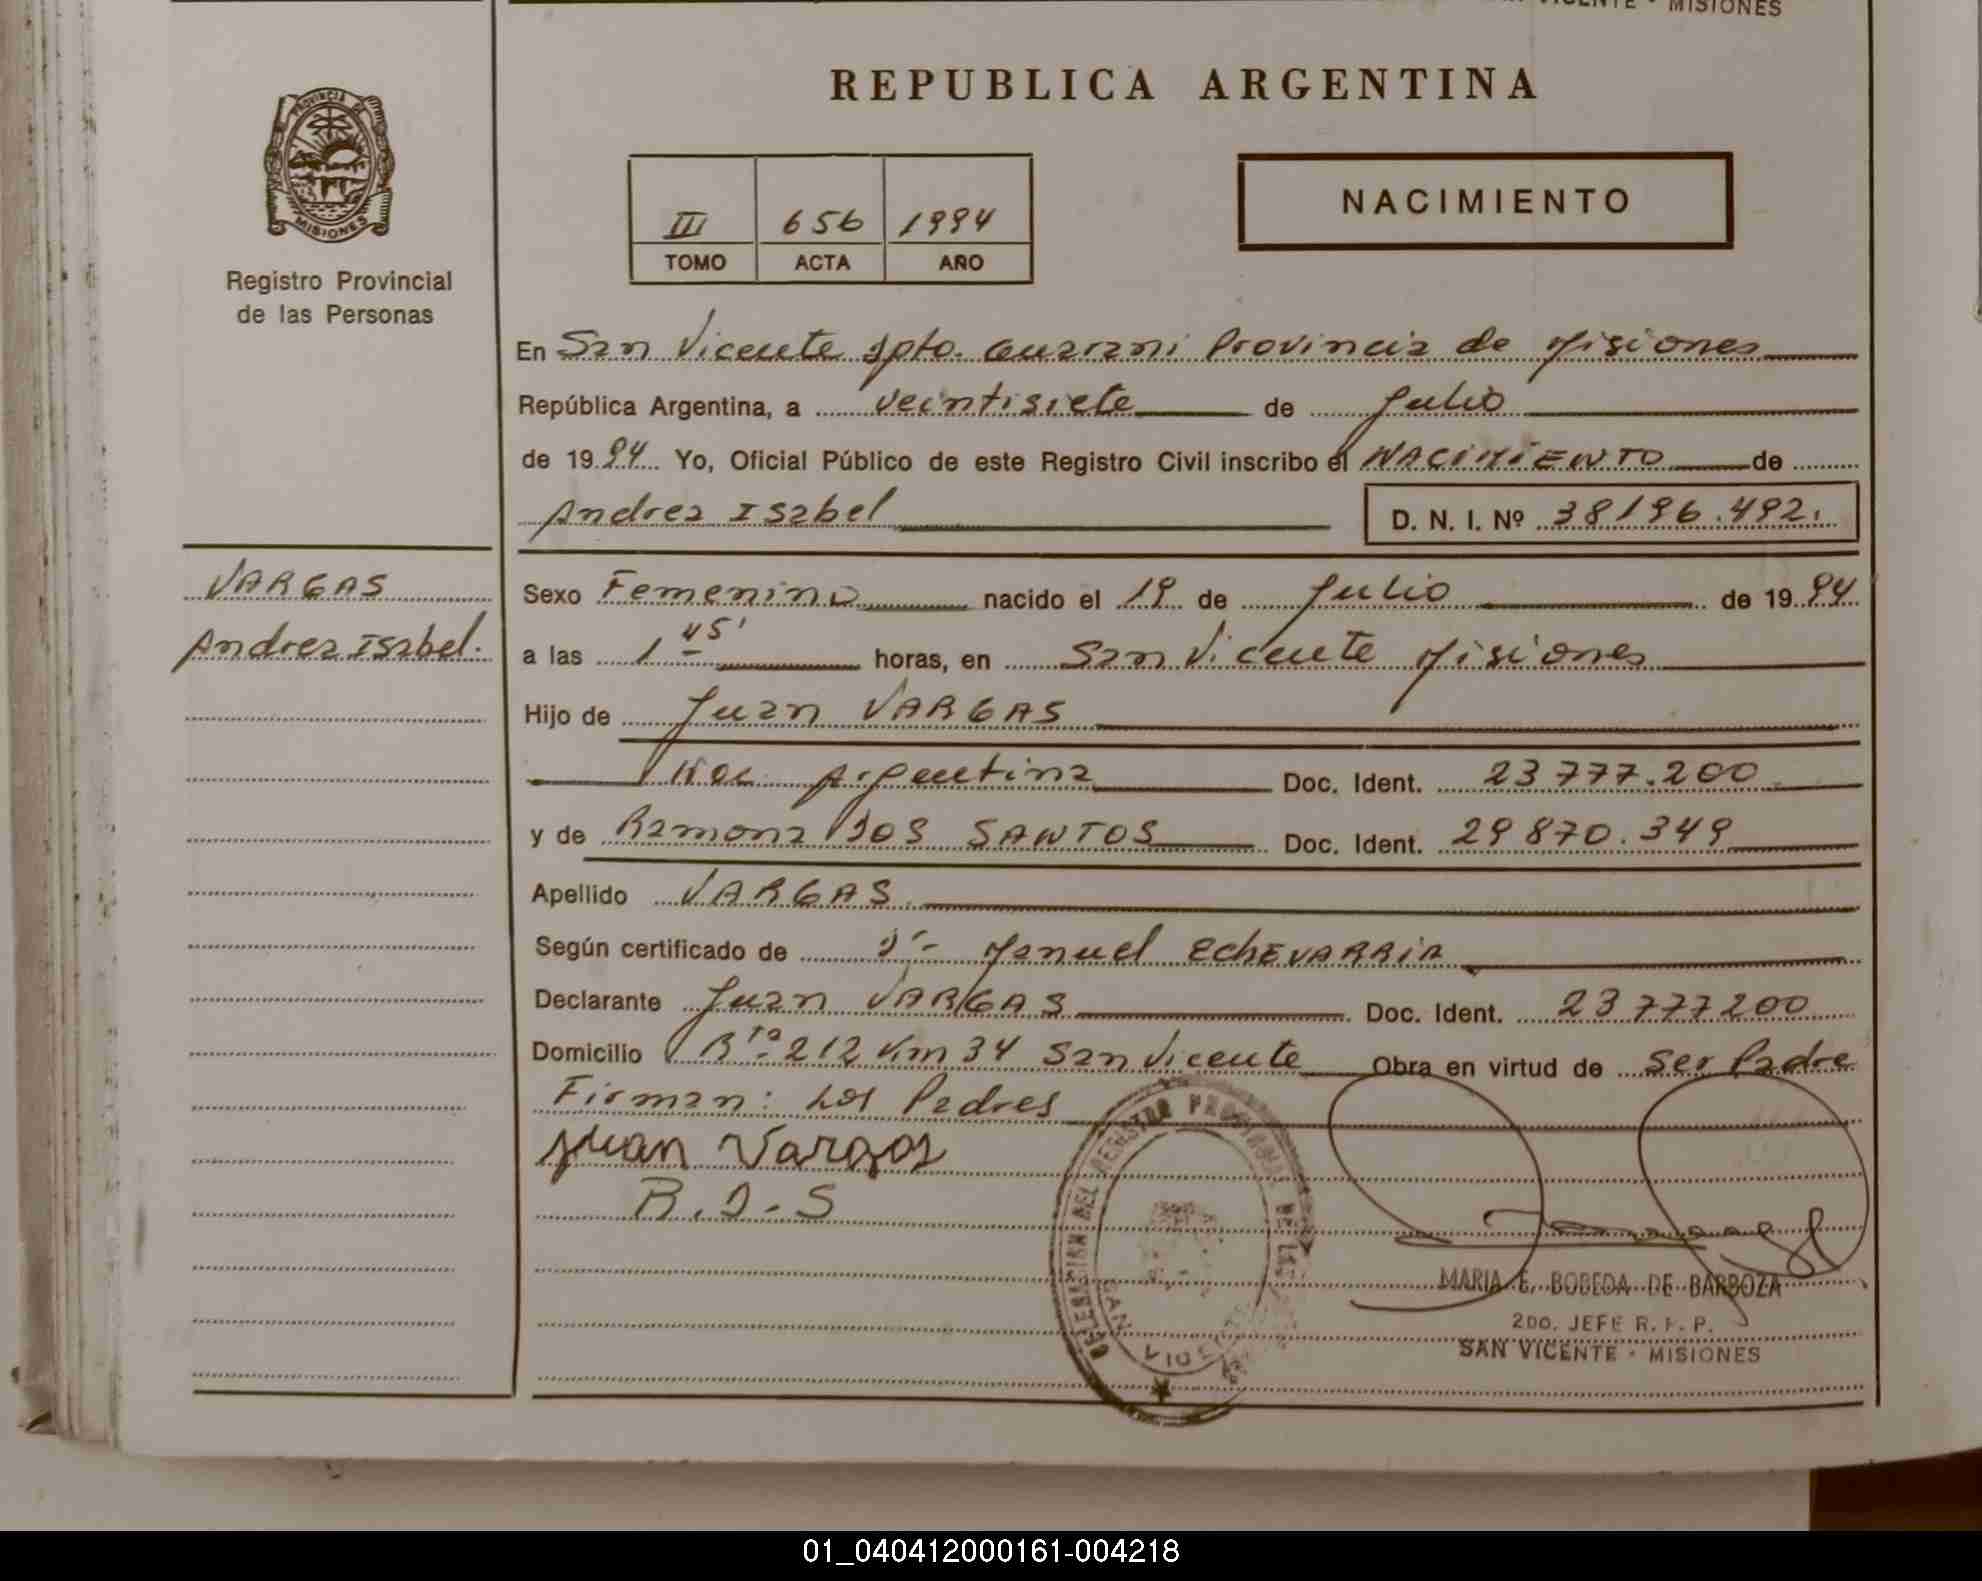 SAN VICENTE - MISIONES
REPUBLICA ARGENTINA
PROVINCIA DE
MISIONES
Registro Provincial
de las Personas
III 656 1994
TOMO ACTA AÑO
NACIMIENTO
En San Vicente Dpto. Guarani Provincia de Misiones
República Argentina, a veintisiete de Julio
de 1994 Yo, Oficial Público de este Registro Civil inscribo el NACIMIENTO de
Andrea Isabel D. N. I. Nº 38196.492.
VARGAS
Andrea Isabel.
Sexo Femenino nacido el 19 de Julio de 1994
a las 1 45' horas, en San Vicente Misiones
Hijo de Juan VARGAS
Nac. Argentina Doc. Ident. 23777.200
y de Ramona DOS SANTOS Doc. Ident. 29870.349
Apellido VARGAS
Según certificado de Dr Manuel EchEVARRIA
Declarante Juan VARGAS Doc. Ident. 23777200
Domicilio Rta 212 Km 34 San Vicente Obra en virtud de Ser Padre
Firman: Los Padres
Juan Vargas
R.D-S
DELEGACION DEL REGISTRO PROVINCIAL DE LAS
SAN VICENTE
MARIA E. BOBEDA DE BARBOZA
2DO. JEFE R. P. P.
SAN VICENTE - MISIONES
01_040412000161-004218